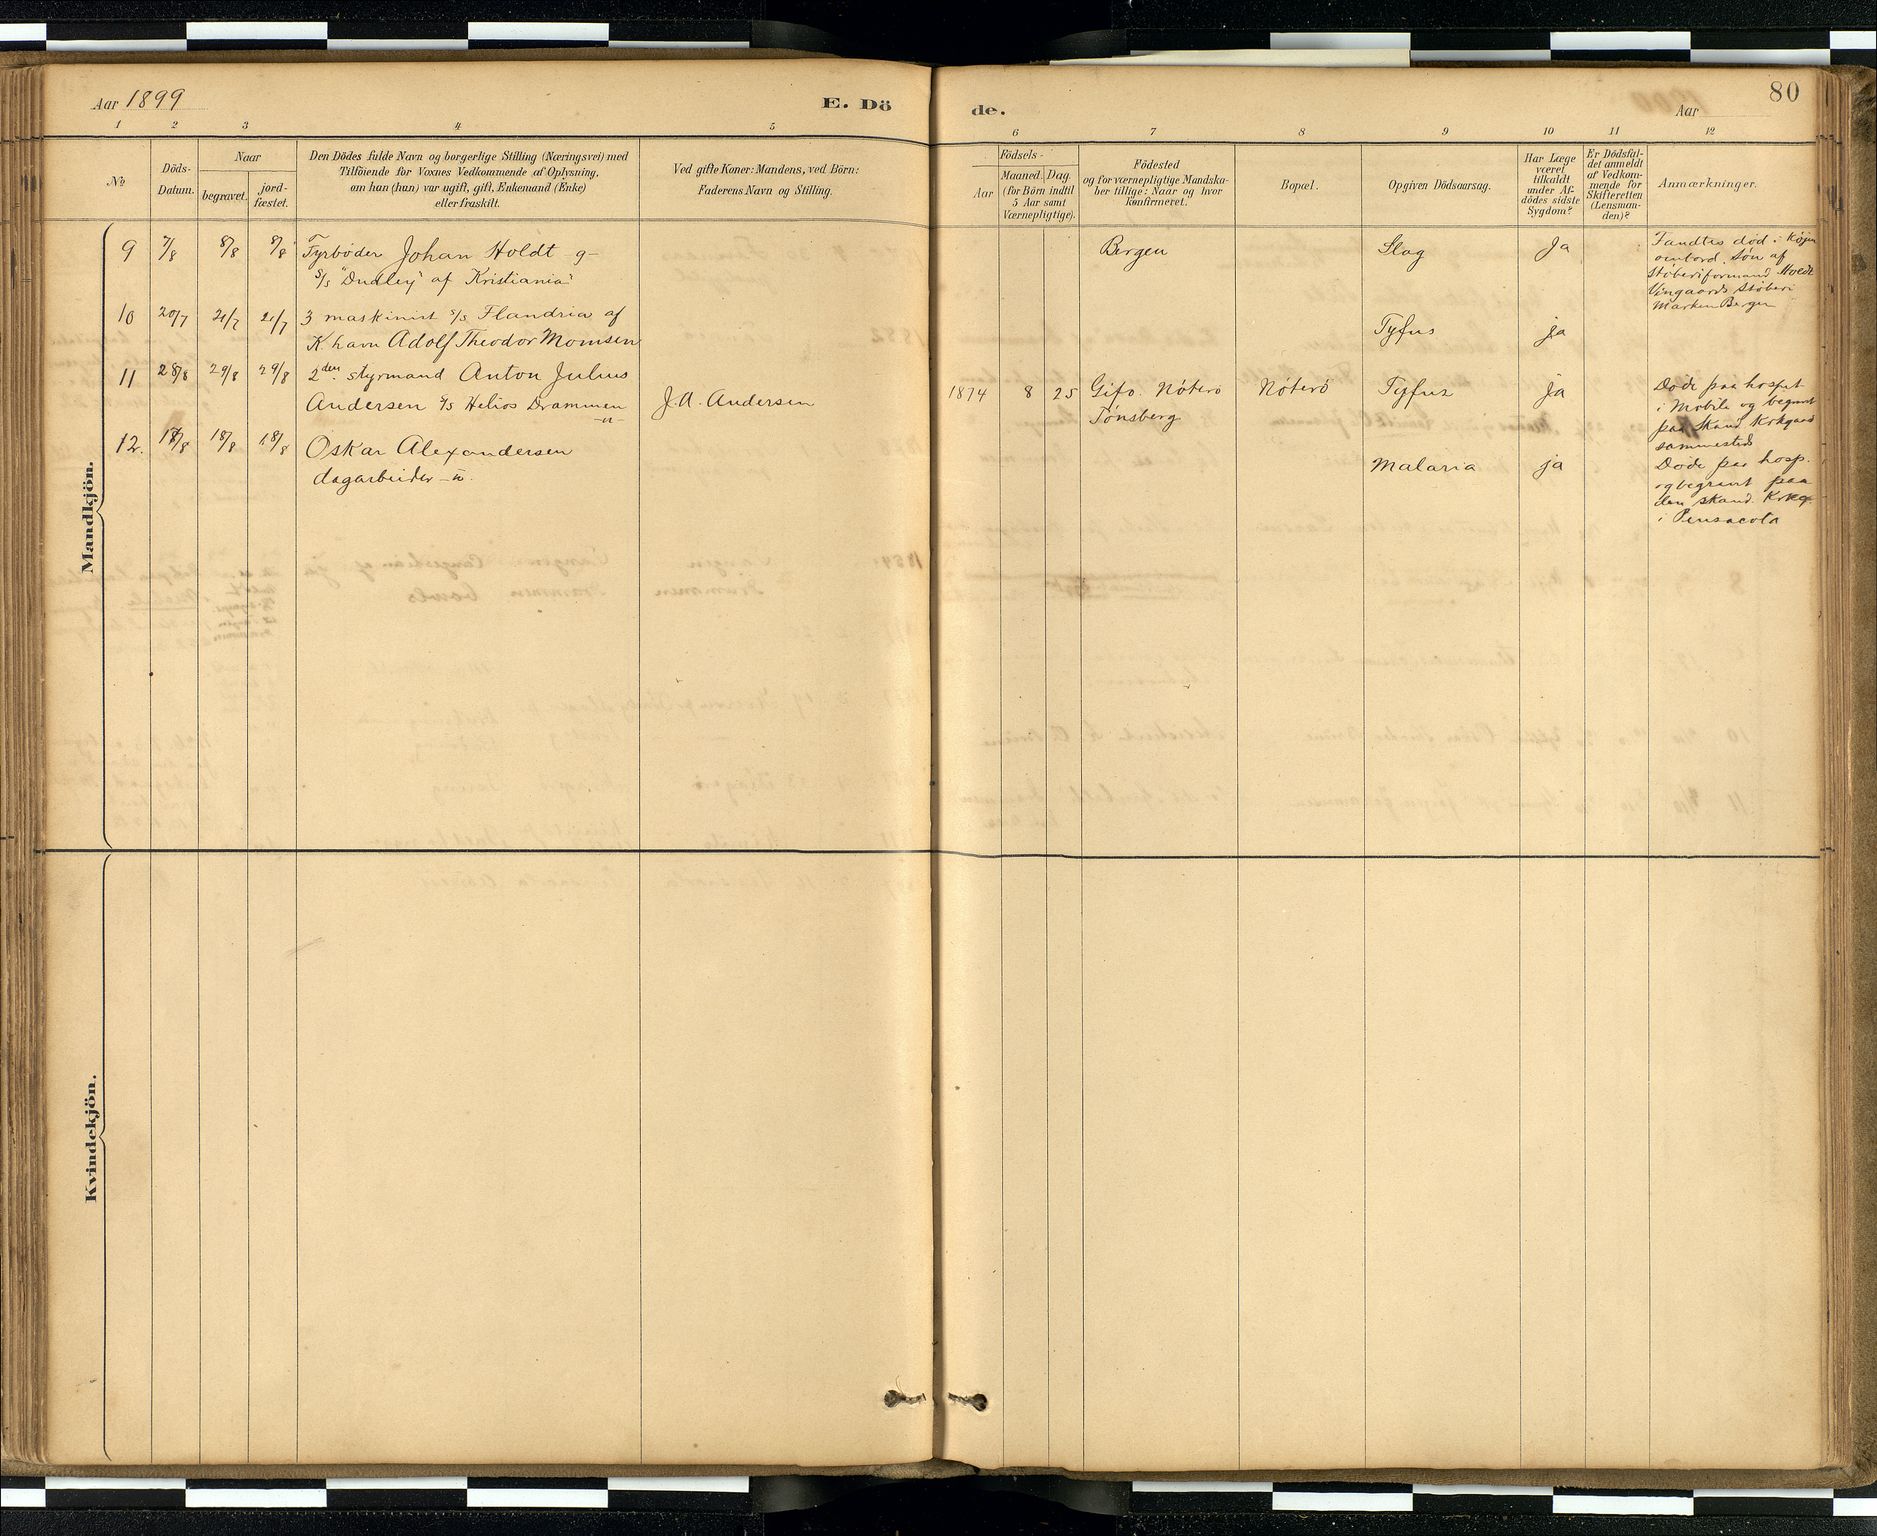 Aar 1899
E. Dö
de.
Aar
80
1
2
3
4
5
6
7
8
9
10
11
12
No
Döds-
Datum.
Naar
begravet.
jord-
fæstet.
Den Dödes fulde Navn og borgerlige Stilling (Næringsvei) med
Tilföiende for Voxnes Vedkommende af Oplysning,
om han (hun) var ugift, gift, Enkemand (Enke)
eller fraskilt.
Ved gifte Koner: Mandens, ved Börn:
Faderens Navn og Stilling.
Födsels-
Aar
Maaned.
Dag.
(for Börn indtil
5 Aar samt
Værnepligtige).
Födested
og for værnepligtige Mandska-
ber tillige: Naar og hvor
konfirmeret.
Bopæl.
Opgiven Dödsaarsag.
Har Læge
været
tilkaldt
under Af-
dödes sidste
Sygdom?
Er Dödsfal-
det anmeldt
af Vedkom-
mende for
Skifteretten
(Lensman-
den)?
Anmærkninger.
Mandkjön.
9
7/8
8/8
8/8
Fyrbøder Johan Holdt g-
S/s "Dudley" af Kristiania"
Bergen
Slag
Ja
Fandtes død i Køjen
ombord. Søn af
Støberiformand Holdt
Vingaards Støberi
Marken Bergen
10
20/7
21/7
21/7
3 maskinist s/s Flandria af
Khavn Adolf Theodor Momsen
Tyfus
ja
11
28/8
29/8
29/8
2den styrmand Anton Julius
Andersen s/s Helios Drammen
-u-
J. A. Andersen
1874
8
25
Gifo. Nøterø
Tønsberg
Nøterø
Tyfus
ja
Døde paa hospit
i Mobile og begravt
paa Skand. Kirkgaard
sammesteds
12.
17/8
18/8
18/8
Oskar Alexandersen
dagarbeider -u.
Malaria
ja
Døde paa hosp.
og begravt paa
den skand. Kirkeg.
i Pensacola
Kvindekjön.